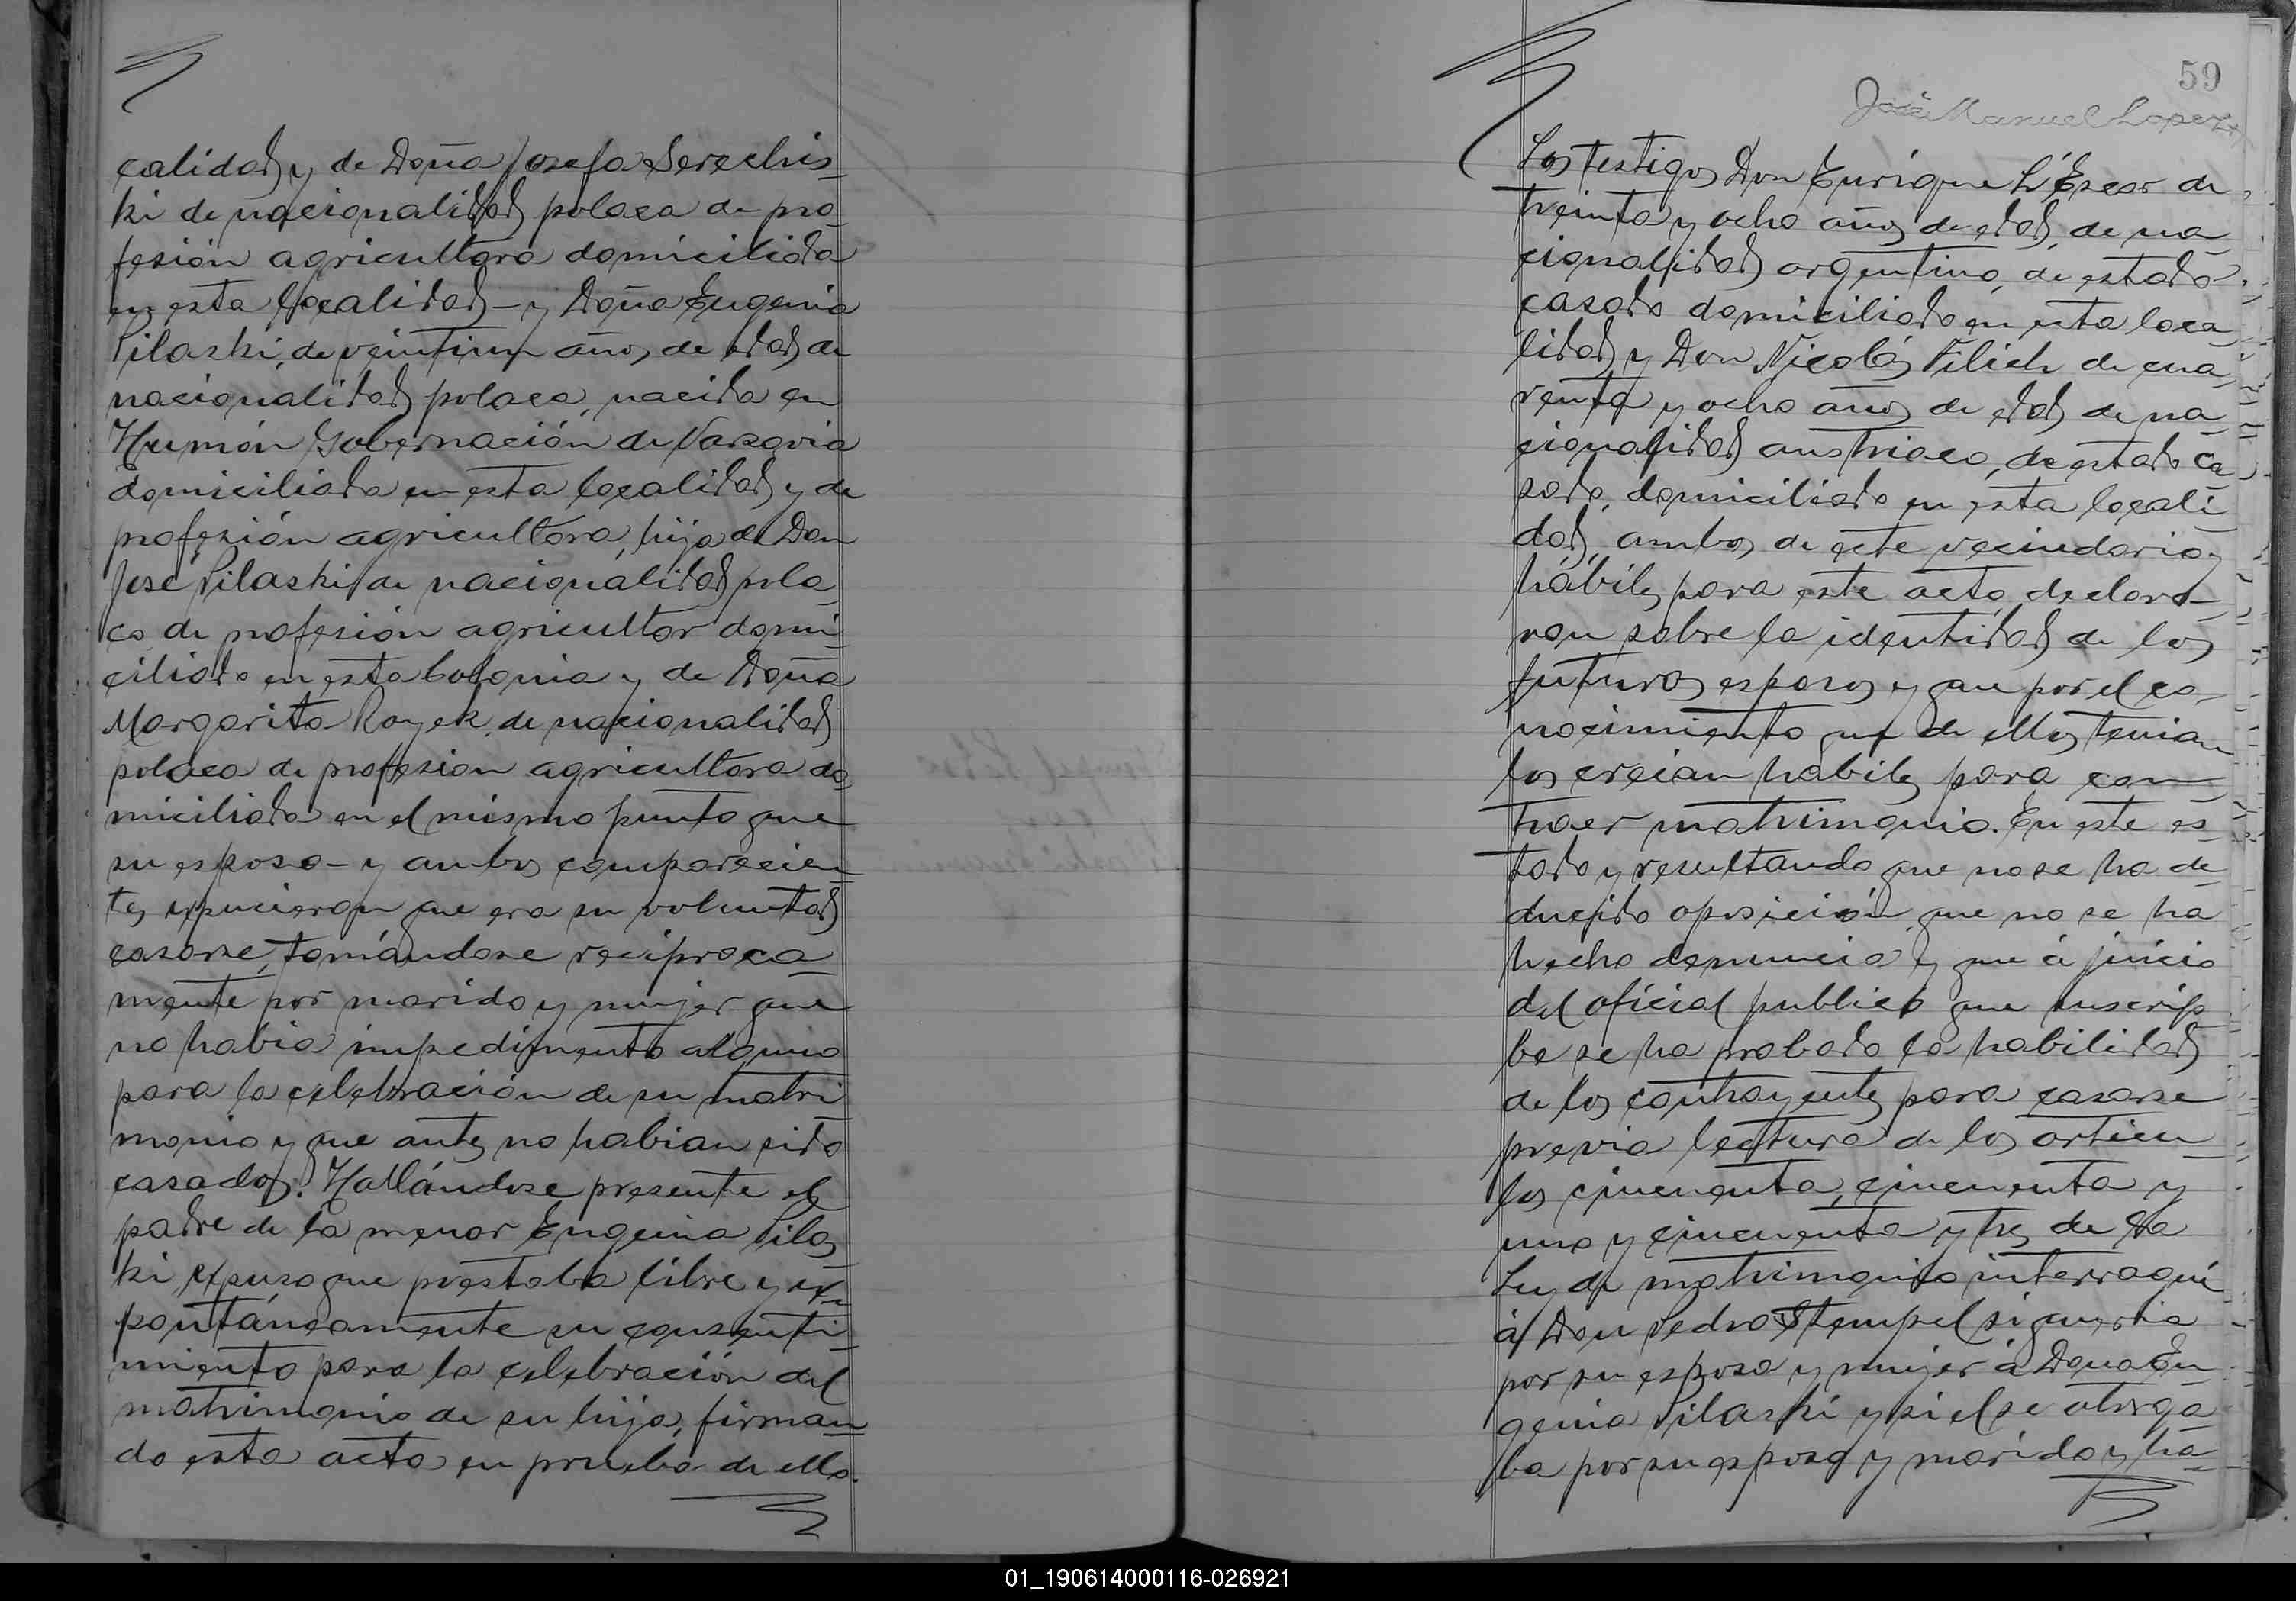 calidad y de Doña Josefa Serechis
ki de nacionalidad polaca de pro
fesión agricultora domiciliada
en esta localidad – y Doña Eugenia
Pilaski, de veintiun años de edad de
nacionalidad polaca, nacida en
Humón Gobernación de Varsovia
domiciliada en esta localidad y de
profesión agricultora, hija de Don
José Pilaski de nacionalidad pola
ca de profesión agricultor domi
ciliado en esta Colonia y de Doña
Margarita Royek, de nacionalidad
polaca de profesion agricultora do
miciliada en el mismo punto que
su esposo – y ambos comparecien
tes expucieron que era su voluntad
casarse, tomándose reciproca
mente por marido y mujer que
no habia impedimento alguno
para la celebración de su matri
monio y que antes no habian sido
casados. Hallándose presente el
padre de la menor Eugenia Pilas
ki expuso que prestaba libre y ex
pontáneamente su consenti
miento para la celebración del
matrimonio de su hija, firman
do esta acta en prueba de ello.
59
José Manuel Lopez
Los testigos Don Enrique L'Escar de
treinta y ocho años de edad, de na
cionalidad argentino, de estado
casado domiciliado en esta loca
lidad y Don Nicolás Filich de cua
renta y ocho años de edad de na
cionalidad austriaco, de estado ca
sado, domiciliado en esta locali
dad, ambos de este vecindario y
hábiles para este acto, declara
ron sobre la identidad de los
futuros esposos y que por el co
nocimiento que de ellos tenian
los creian habiles para con
traer matrimonio. En este es
tado y resultando que no se ha de
ducido oposición, que no se ha
hecho denuncia y que á juicio
del oficial publico que suscrip
be se ha probado la habilidad
de los contrayentes para casarse
previa lectura de los articu
los cincuenta, cincuenta y
uno y cincuenta y tres de la
Ley de matrimonio interrogué
á Don Pedro Stempel si queria
por su esposa y mujer á Dona Eu
genia Pilaski y si el se otorga
ba por su esposo y marido y ha
01_190614000116-026921